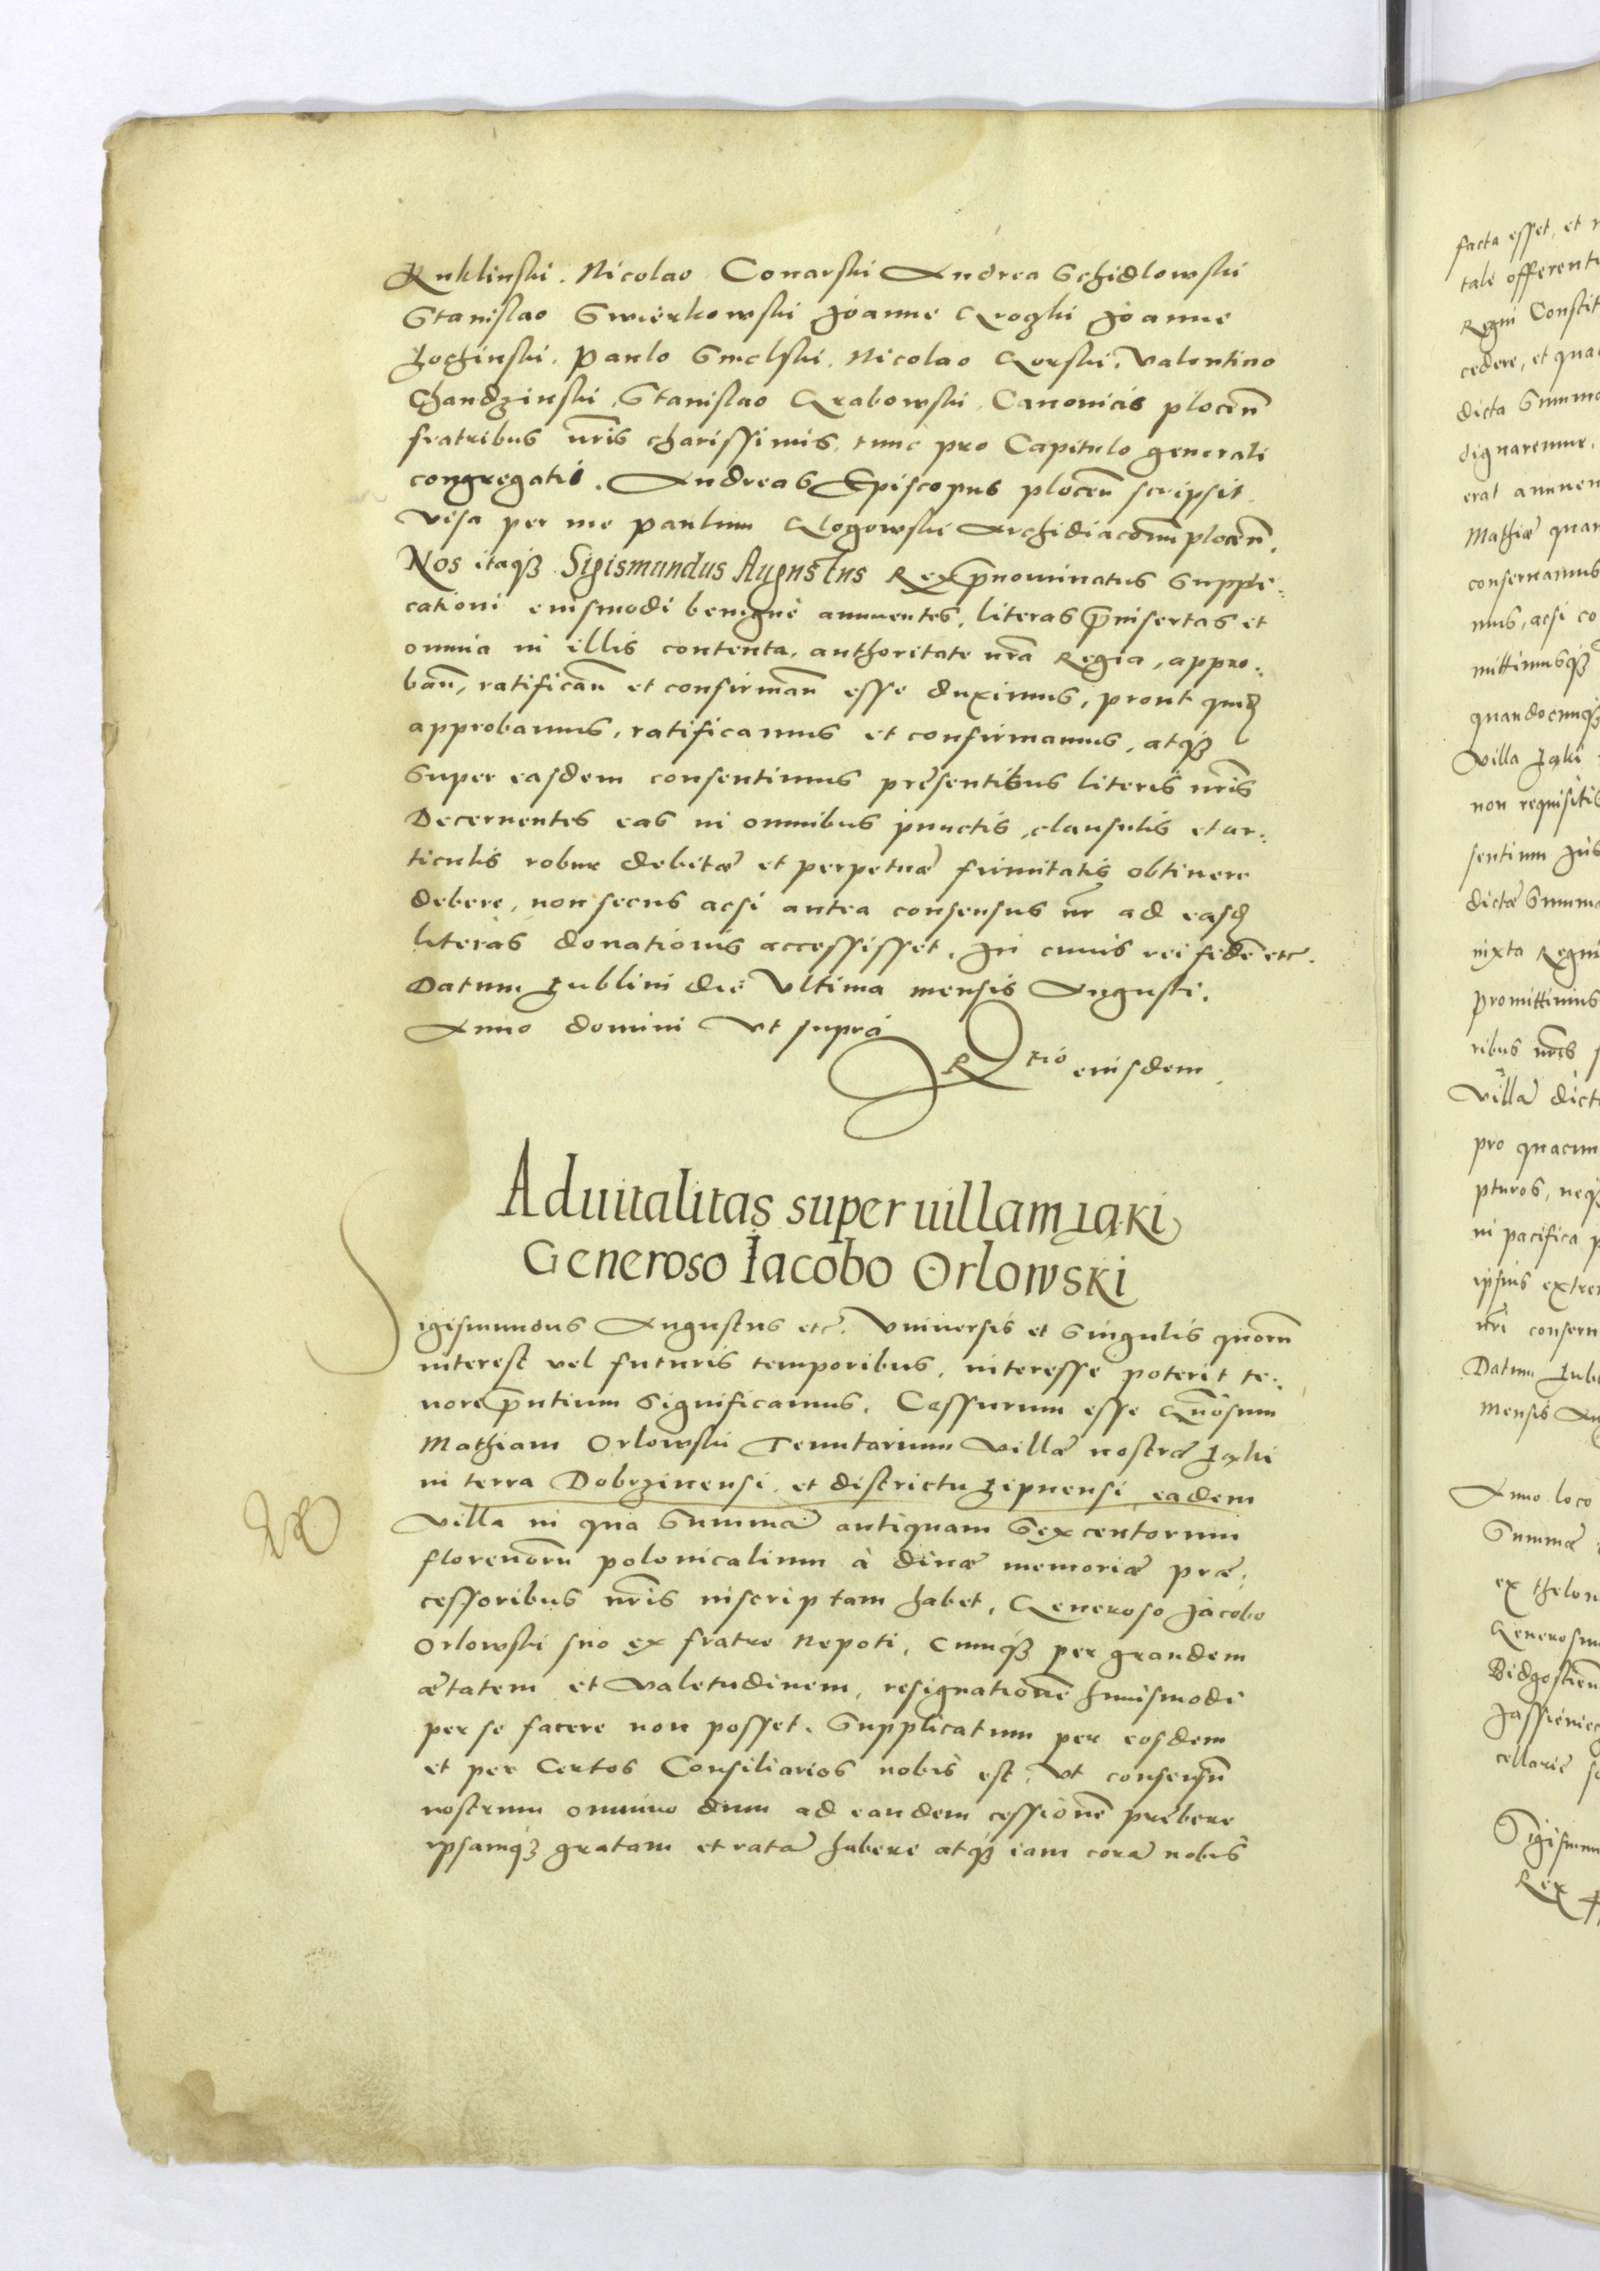 Kuklinski. Nicolao Conarski Andrea Schidlowski
Stanislao Swierkowski Joanne Grozki Joanne
Lochinski. Paulo Smelski. Nicolao Gorski. Valentino
Chandzinski. Stanislao Grabowski. Canonicis plocen̄
fratribus nr̄is charissimis, tunc pro Capitulo generali
congregatis. Andreas Episcopus plocen̄ scripsit
Visa per me paulum Glogowski Archidiaconum plocen̄.
Nos itaqꝫ Sigismundus Augustus Rex p̄nominatus suppli:
cationi eiusmodi benigne annuentes, literas p̄insertas et
omnia in illis contenta, authoritate nr̄a Regia, appro:
ban̄, ratifican̄ et confirman̄ esse duximus, prout quidē
approbamus, ratificamus et confirmamus, atqꝫ
super easdem consentimus presentibus literis nr̄is
Decernentes eas in omnibus punctis, clausulis et ar:
ticulis robur debitæ et perpetuæ firmitatis obtinere
debere, non secus acsi antea consensus nr̄ ad easdē
literas donationis accessisset. In cuius rei fidē etc.
Datum Lublini die Ultima mensis Augusti.
Anno domini ut supra
R tio eiusdem.
Aduitalitas super uillam Łąki
Generoso Iacobo Orlowski
Sigismundus Augustus etc. Vniuersis et singulis quorū
interest vel futuris temporibus, interesse poterit te:
nore p̄ntium significamus. Cessurum esse Gn̄osum
Mathiam Orlowski Tenutarium Villæ nostræ Łąki
in terra Dobrzinensi, et districtu Lipnensi, eadem
villa in qua summā antiquam Sexcentorum
florenorū polonicalium à diuæ memoriæ præ:
cessoribus nr̄is inscriptam habet, Generoso Jacobo
Orlowski suo ex fratre Nepoti, Cumqꝫ per grandem
ætatem et valetudinem, resignationē huiusmodi
per se facere non posset, Supplicatum per eosdem
et per Certos Consiliarios nobis est, Ut consensū
nostrum omnino dum ad eandem cessionē prebere
ipsamqꝫ gratam et ratā habere atqꝫ eam corā nobis
facta esset, et
tale offerenti
Regni Constit
cedere, et qua
dicta Summa
dignaremur,
erat annuen
Mathiæ quar
conseruamus
mus, acsi co
mittimusqꝫ
quandocunqꝫ
Villa Łąki
non requisitis
sentium Jus
dictæ Summæ
iuxta Regni
promittimus
ribus nr̄is
Villā dict
pro quacun
pturos, neqꝫ
in pacifica p
ipsius extre
nr̄i conseru
Datum Lubl
Mensis Au
Anno loco
Summæ
ex thelon
Generosu
Bidgostien̄
cellarie
Sigismu
Rex